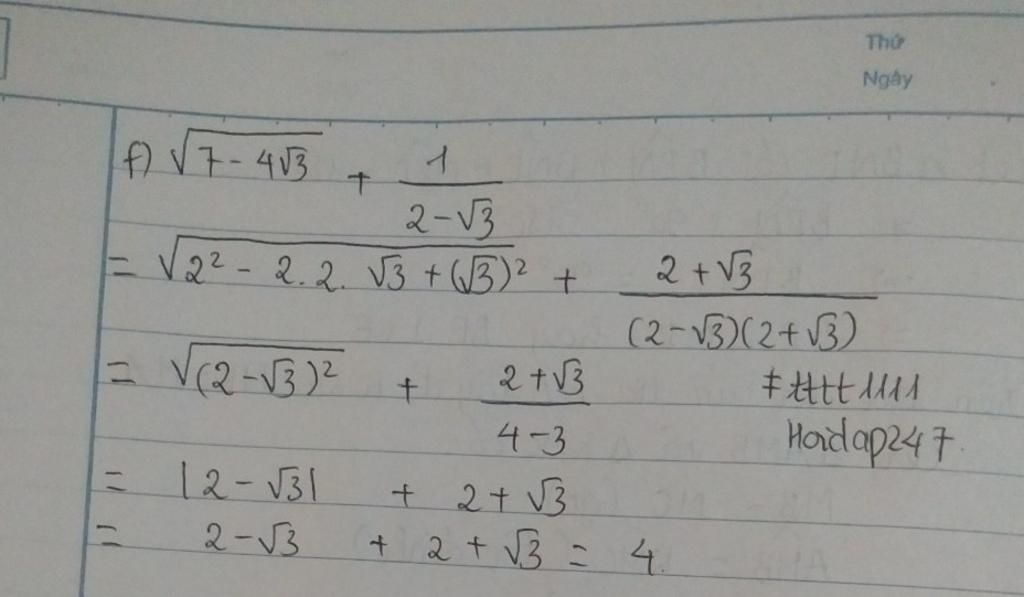 Thứ
Ngày
f) √(7 - 4√3) + 1/(2 - √3)
= √(2² - 2.2.√3 + (√3)²) + (2 + √3)/((2 - √3)(2 + √3))
= √((2 - √3)²) + (2 + √3)/(4 - 3)
#tttt1111
Hoidap247.
= |2 - √3| + 2 + √3
= 2 - √3 + 2 + √3 = 4.